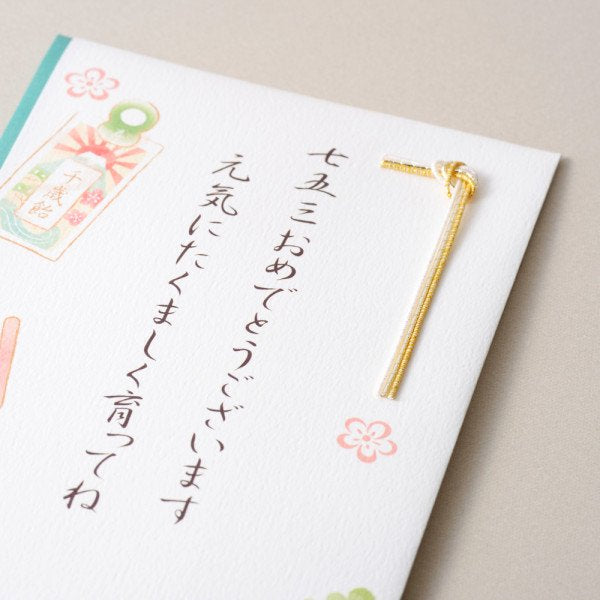 七五三おめでとうございます
元気にたくましく育ってね
千歳飴